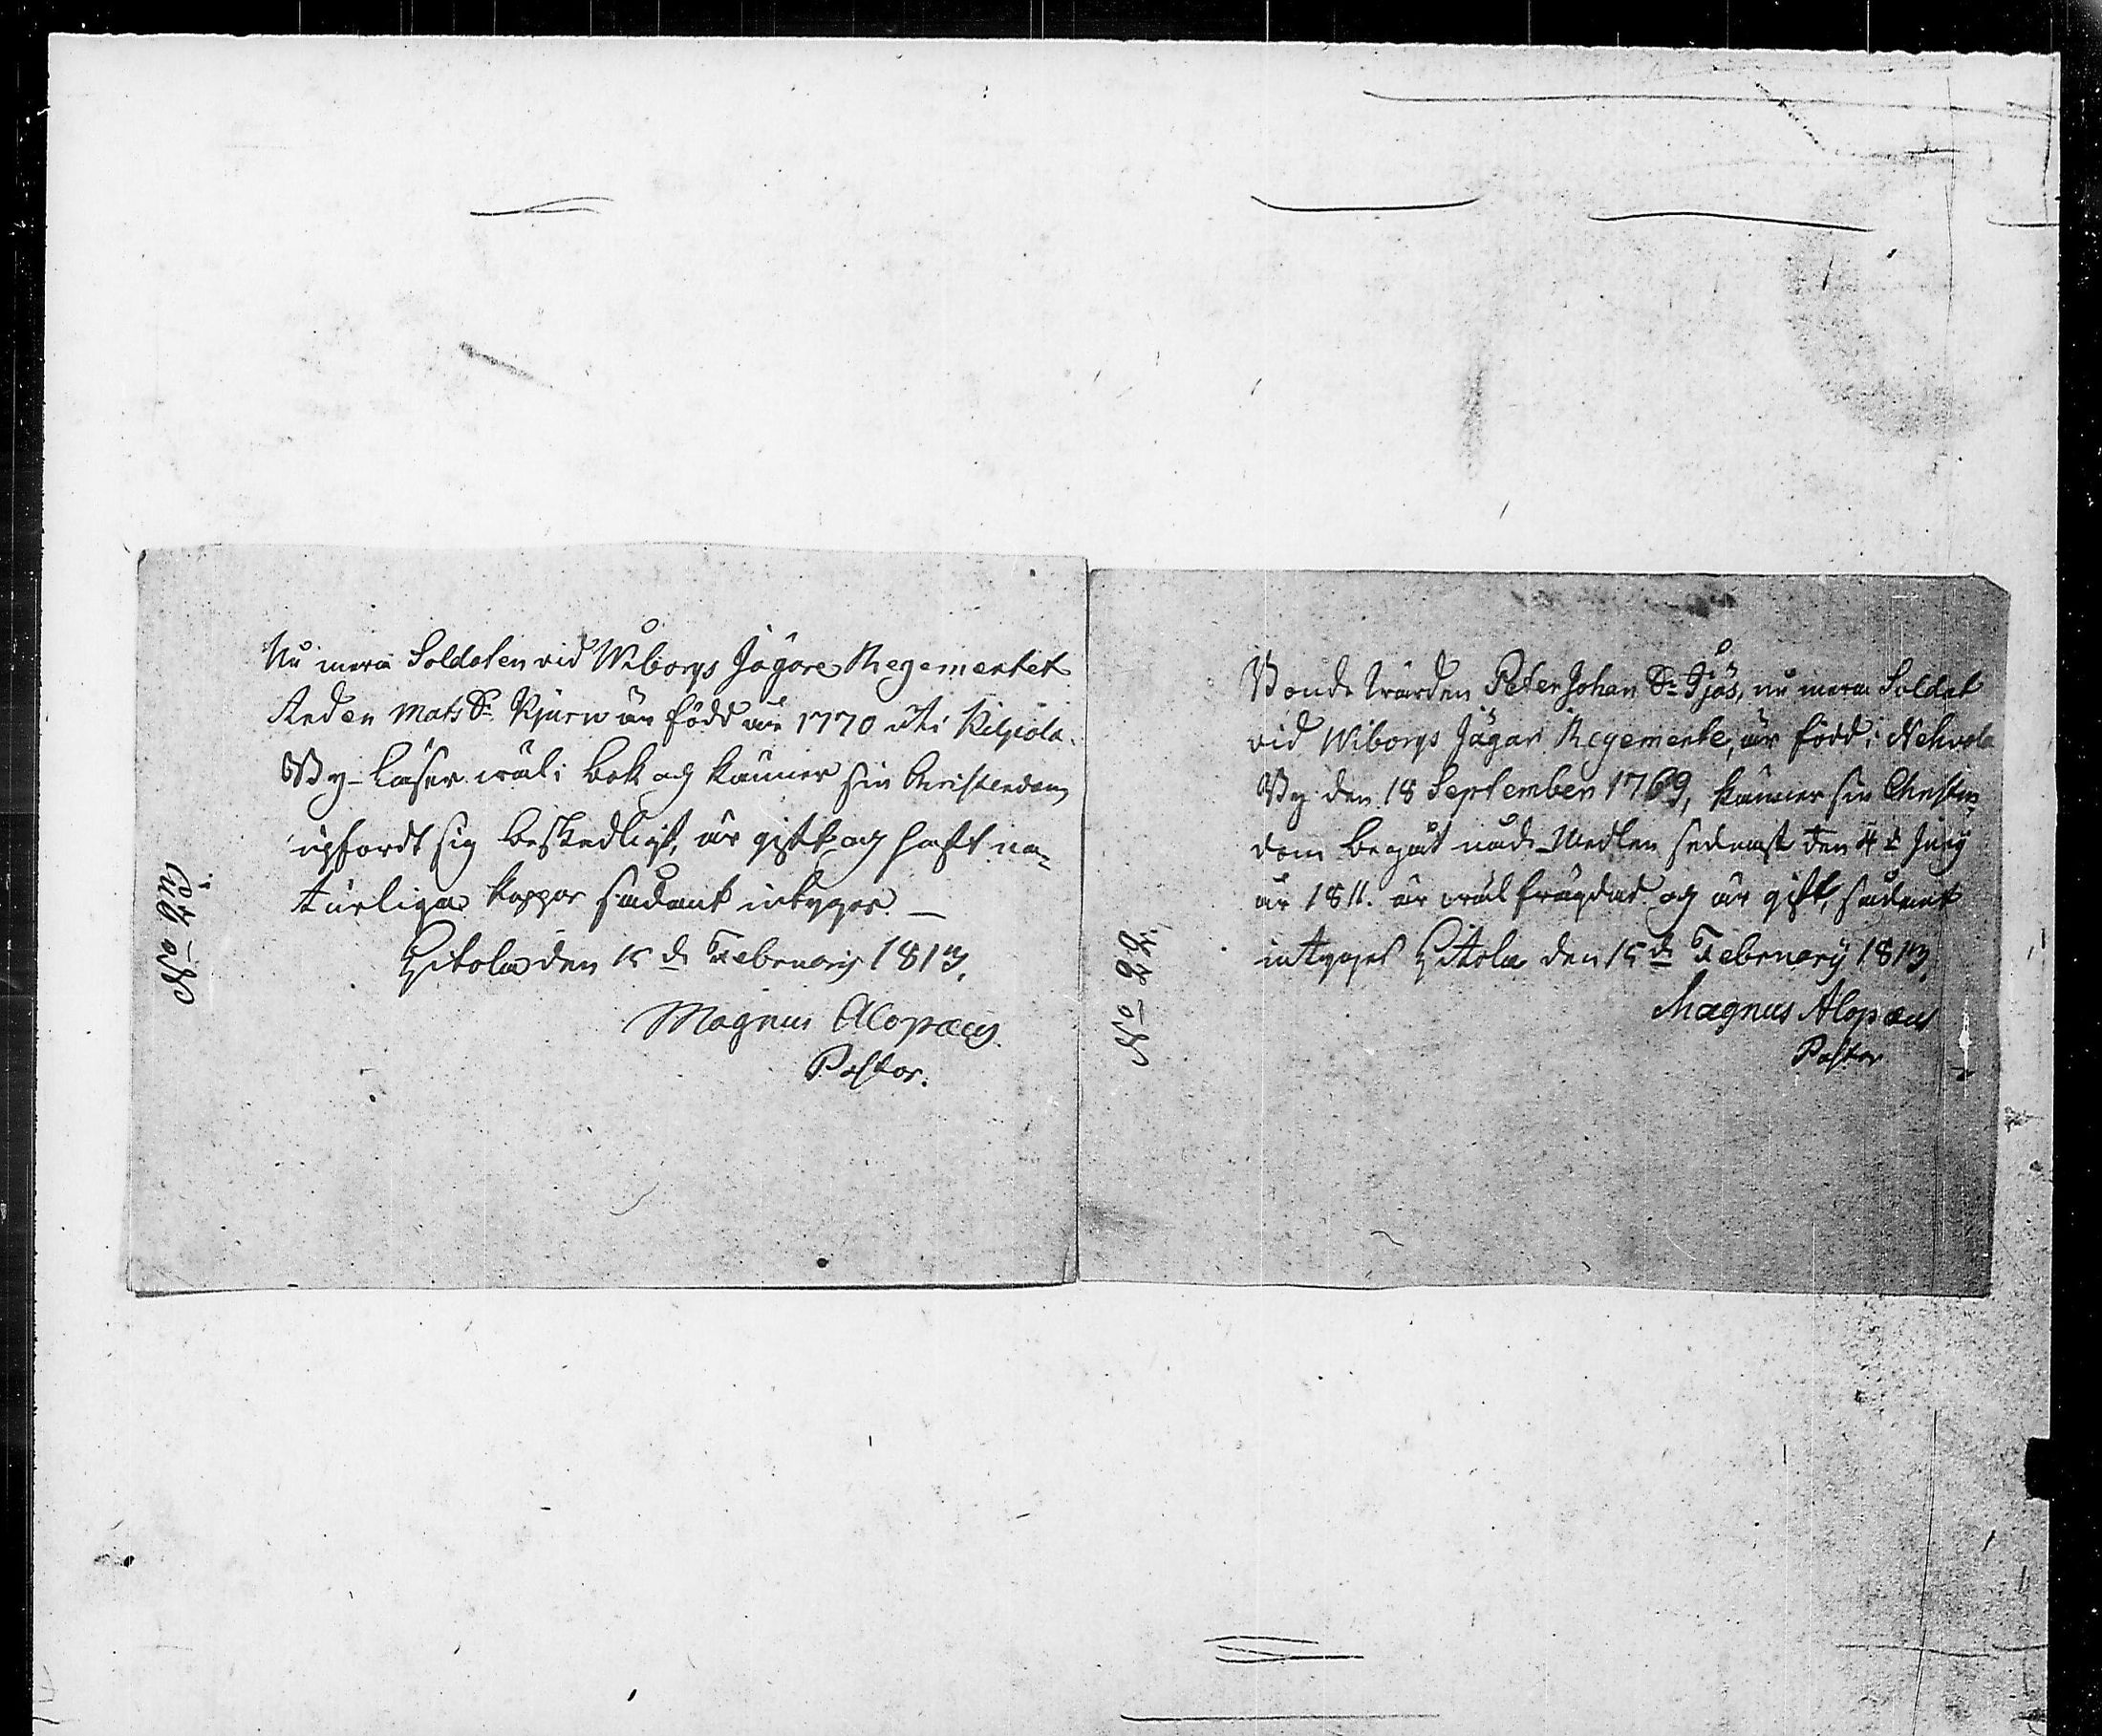 Nu mera Soldaten vid Wiborgs Jägare Regementet
Mats Sn är född år 1770 uti Kilpiola
By - läser wäl i bok och känner sin Christendom,
upfördt sig beskedligt, är gift och haft na-
turliga koppor sådant intygas. —
Hitola den 15 de Februarij 1813.
Magnus Alopæus
Pastor.
Bonde Wärden Peter Johan Sn, nu mera Soldat
vid Wiborgs Jägar Regemente, är född i Nehvola
By den 18 September 1769, känner sin Christen-
dom begåt nåde-Medlen sednast den
år 1811. är wäl frägdad och är gift, sådant
intygas Hitola den 15 de Februarij 1813.
Magnus Alopæus
Pastor
No 22.